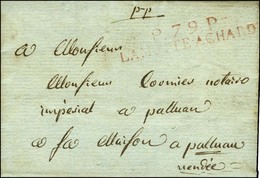 p.p
P. 79. P.
LA MOTTE ACHARD
a Monsieur
Monsieur Cormier notaire
impérial a palluau
a sa Maison a palluau
vendée